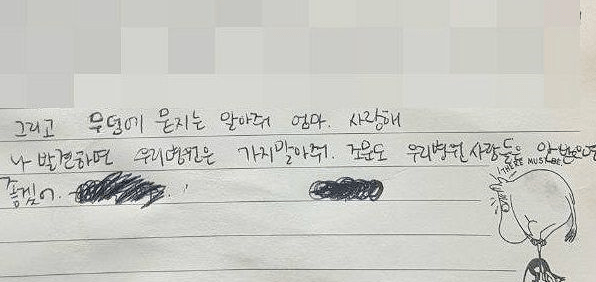 그리고 무덤에 묻지는 말아줘 엄마. 사랑해
나 발견하면 우리병원은 가지말아줘. 조문도 우리병원 사람들은 안 받으면
좋겠어.
THERE MUST BE